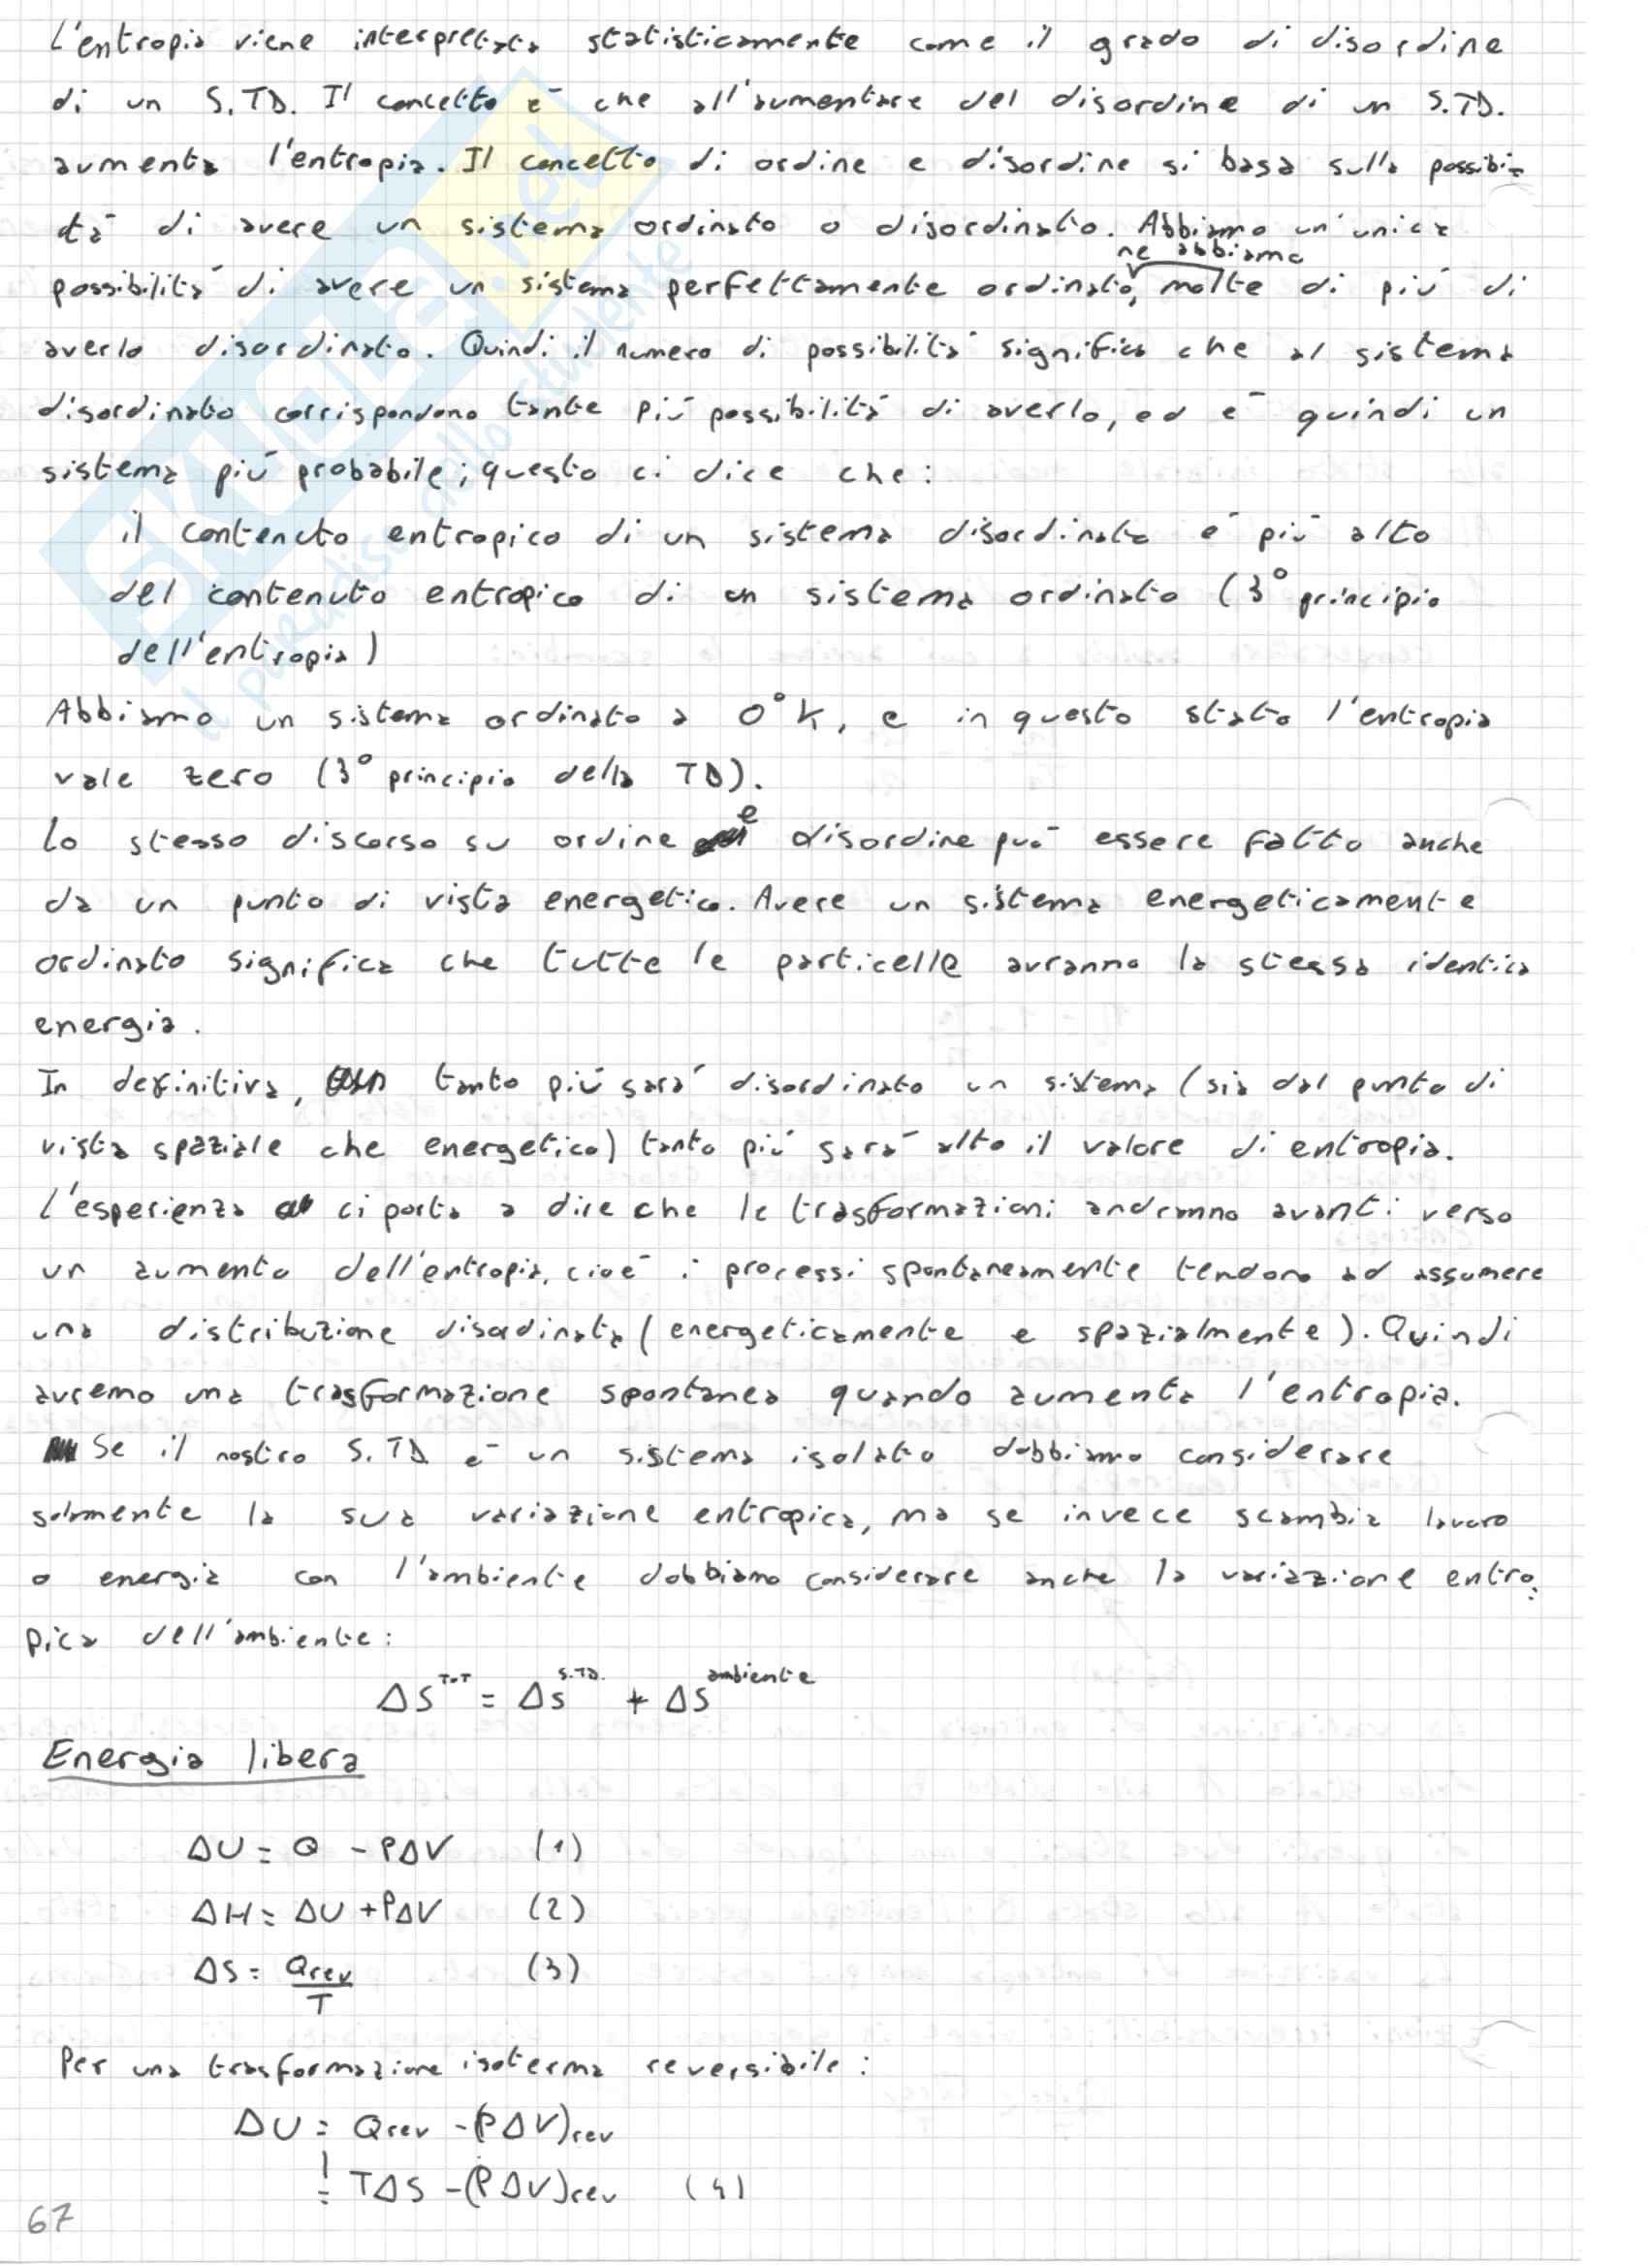 L'entropia viene interpretata statisticamente come il grado di disordine
di un S.TD. Il concetto è che all'aumentare del disordine di un S.TD.
aumenta l'entropia. Il concetto di ordine e disordine si basa sulla possibi=
tà di avere un sistema ordinato o disordinato. Abbiamo un'unica
ne abbiamo
possibilità di avere un sistema perfettamente ordinato, molte di più di
averlo disordinato. Quindi il numero di possibilità significa che al sistema
disordinato corrispondono tante più possibilità di averlo, ed è quindi un
sistema più probabile; questo ci dice che:
il contenuto entropico di un sistema disordinato è più alto
del contenuto entropico di un sistema ordinato (3° principio
dell'entropia)
Abbiamo un sistema ordinato a 0°K, e in questo stato l'entropia
vale zero (3° principio della TD).
Lo stesso discorso su ordine e disordine può essere fatto anche
da un punto di vista energetico. Avere un sistema energeticamente
ordinato significa che tutte le particelle avranno la stessa identica
energia.
In definitiva, tanto più sarà disordinato un sistema (sia dal punto di
vista spaziale che energetico) tanto più sarà alto il valore di entropia.
L'esperienza ci porta a dire che le trasformazioni andranno avanti verso
un aumento dell'entropia, cioè i processi spontaneamente tendono ad assumere
una distribuzione disordinata (energeticamente e spazialmente). Quindi
avremo una trasformazione spontanea quando aumenta l'entropia.
Se il nostro S.TD è un sistema isolato dobbiamo considerare
solamente la sua variazione entropica, ma se invece scambia lavoro
o energia con l'ambiente dobbiamo considerare anche la variazione entro=
pica dell'ambiente:
ΔS^TOT = ΔS^S.TD. + ΔS^ambiente
Energia libera
ΔU = Q - PΔV (1)
ΔH = ΔU + PΔV (2)
ΔS = Qrev/T (3)
Per una trasformazione isoterma reversibile:
ΔU = Qrev - (PΔV)rev
= TΔS - (PΔV)rev (4)
67
SKUOLA.net
il paradiso dello studente